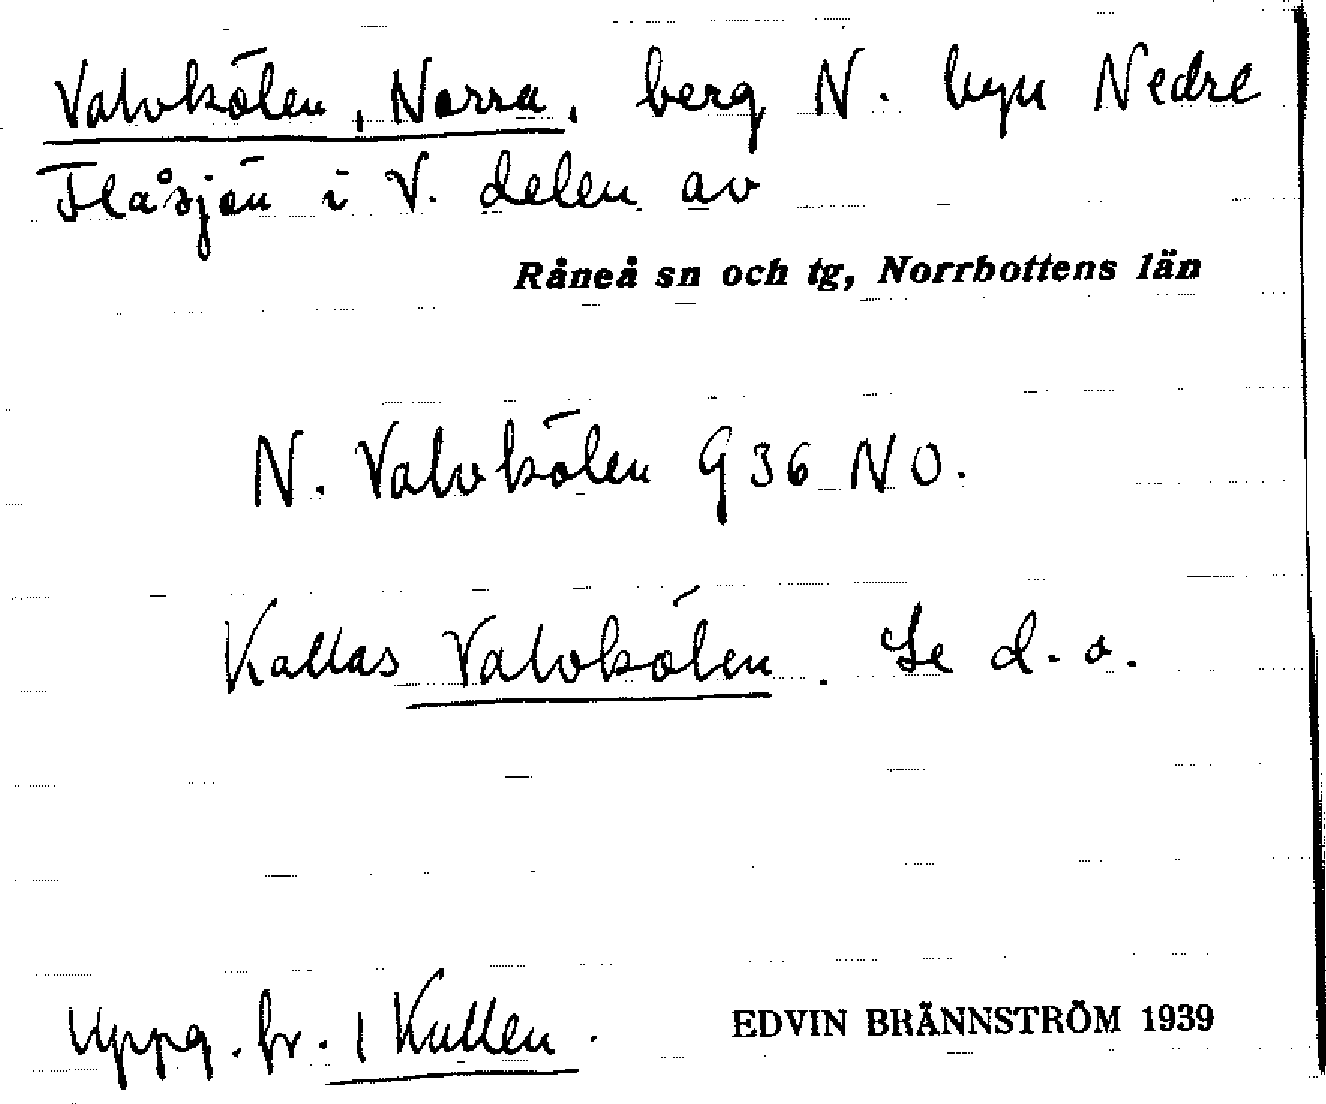 Valvkölen, Norra, berg N. byn Nedre
Flåsjön i V. delen av
Råneå sn och tg, Norrbottens län
N. Valvkölen G 36 NO.
Kallas Valvkölen. Se d. o.
Uppg. fr. 1 Kullen.
EDVIN BRÄNNSTRÖM 1939